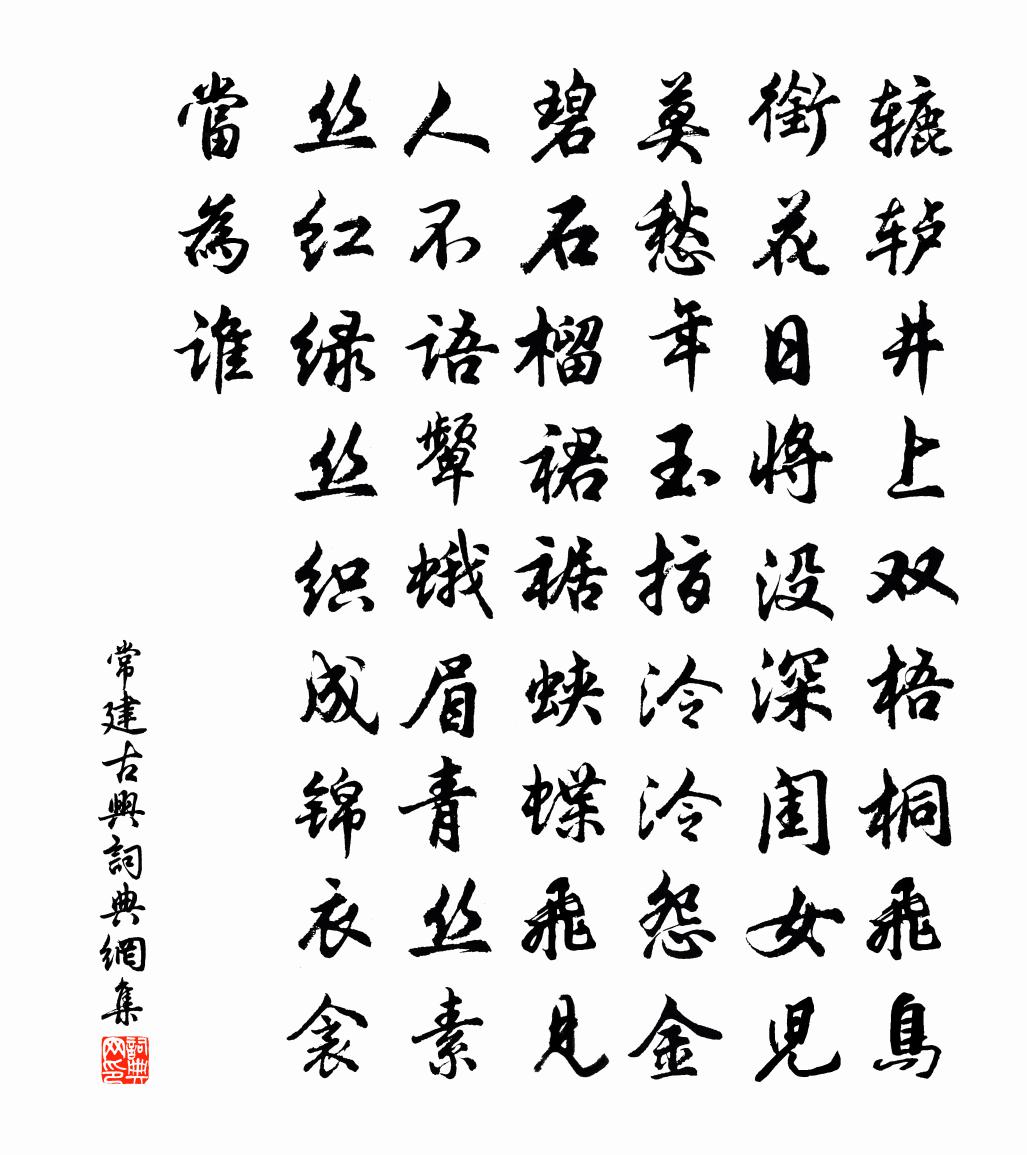 辘轳井上双梧桐飛鳥
銜花日将没深闺女児
莫愁年玉指泠泠怨金
碧石榴裙裾蛱蝶飛见
人不语颦蛾眉青丝素
丝红绿丝织成锦衣衾
當為谁
常建古興詞典網集
詞典网印